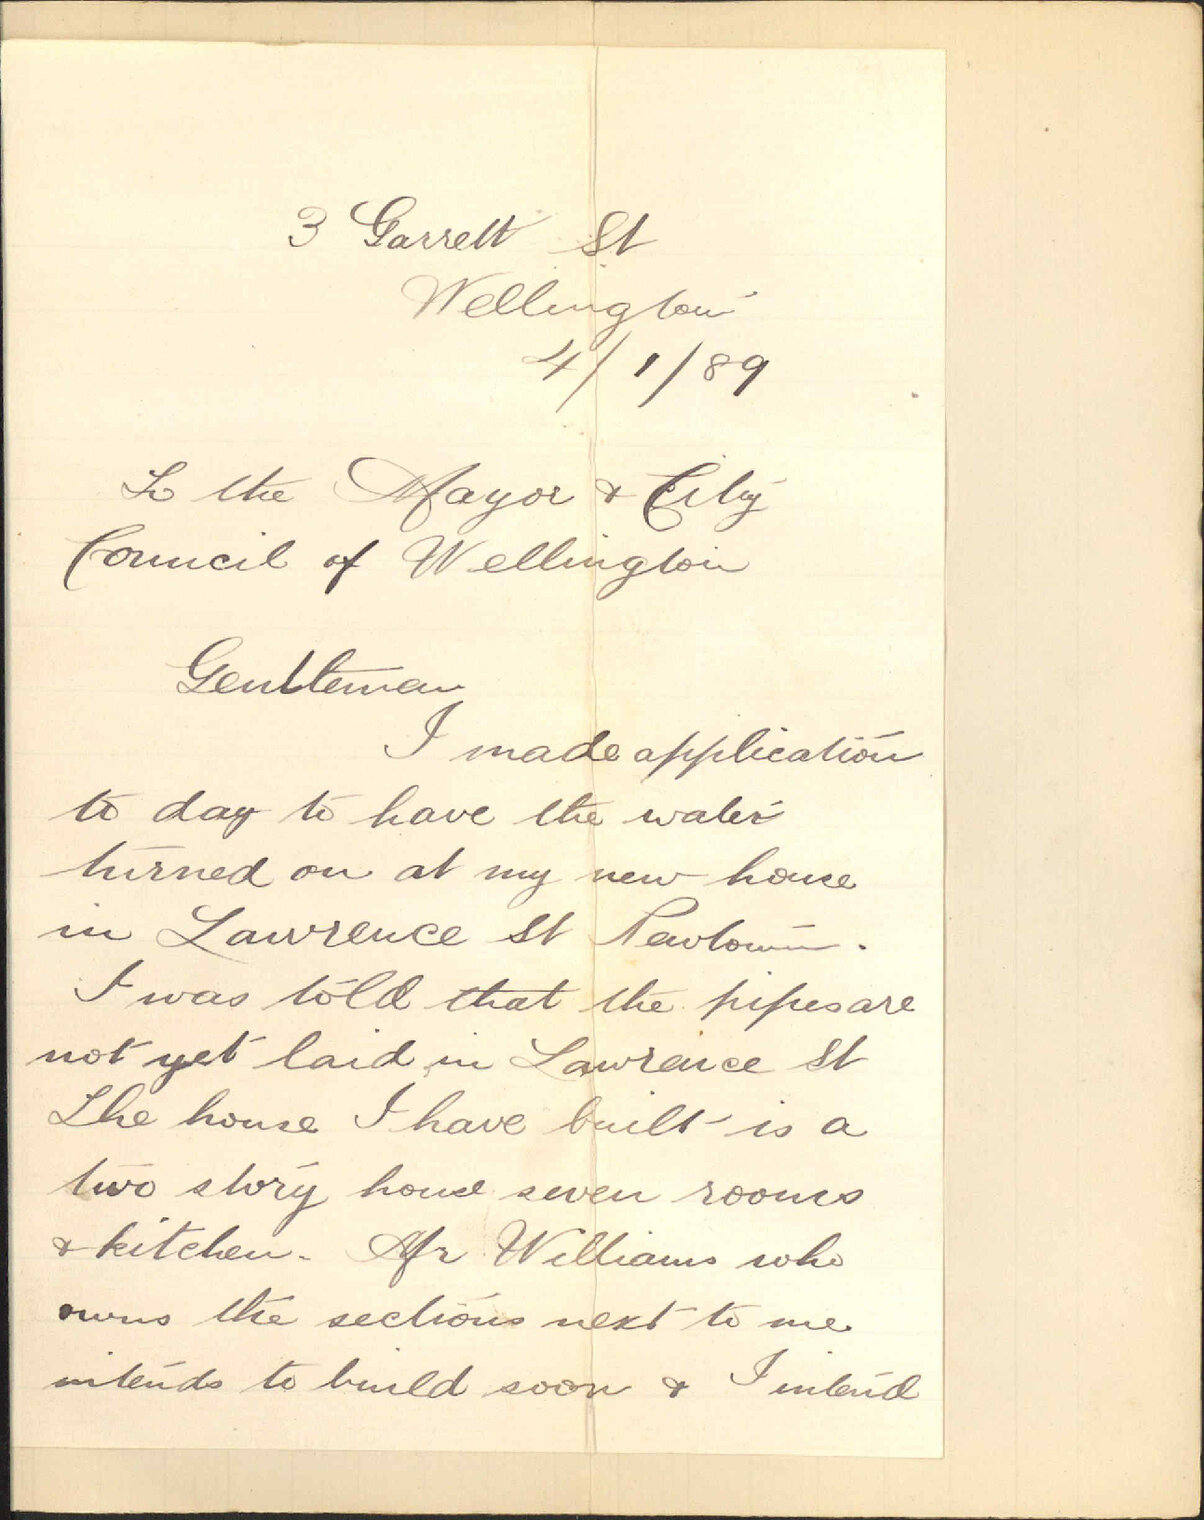 3 Garrett St
Wellington
4/1/89
To the Mayor & City
Council of Wellington
Gentleman
I made application
to day to have the water
turned on at my new house
in Lawrence St Newtown.
I was told that the pipes are
not yet laid in Lawrence St
The house I have built is a
two story house seven rooms
& kitchen. Mr Williams who
owns the sections next to me
intends to build soon & I intend